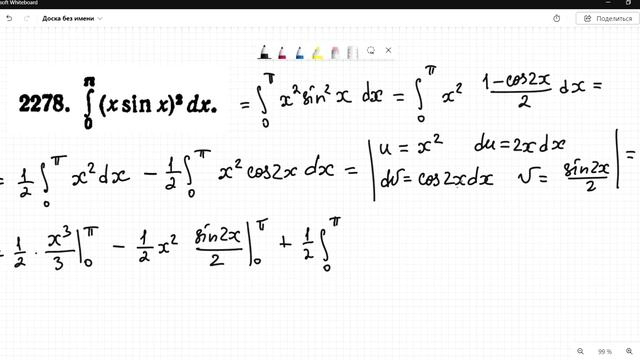 soft Whiteboard
Доска без имени
Поделиться
2278. ∫₀^π (x sin x)² dx. = ∫₀^π x² sin² x dx = ∫₀^π x² (1 − cos2x)/2 dx =
= 1/2 ∫₀^π x² dx − 1/2 ∫₀^π x² cos2x dx = | u = x² du = 2x dx
dv = cos2x dx v = sin2x/2 | =
= 1/2 · x³/3 |₀^π − 1/2 x² sin2x/2 |₀^π + 1/2 ∫₀^π
99 %